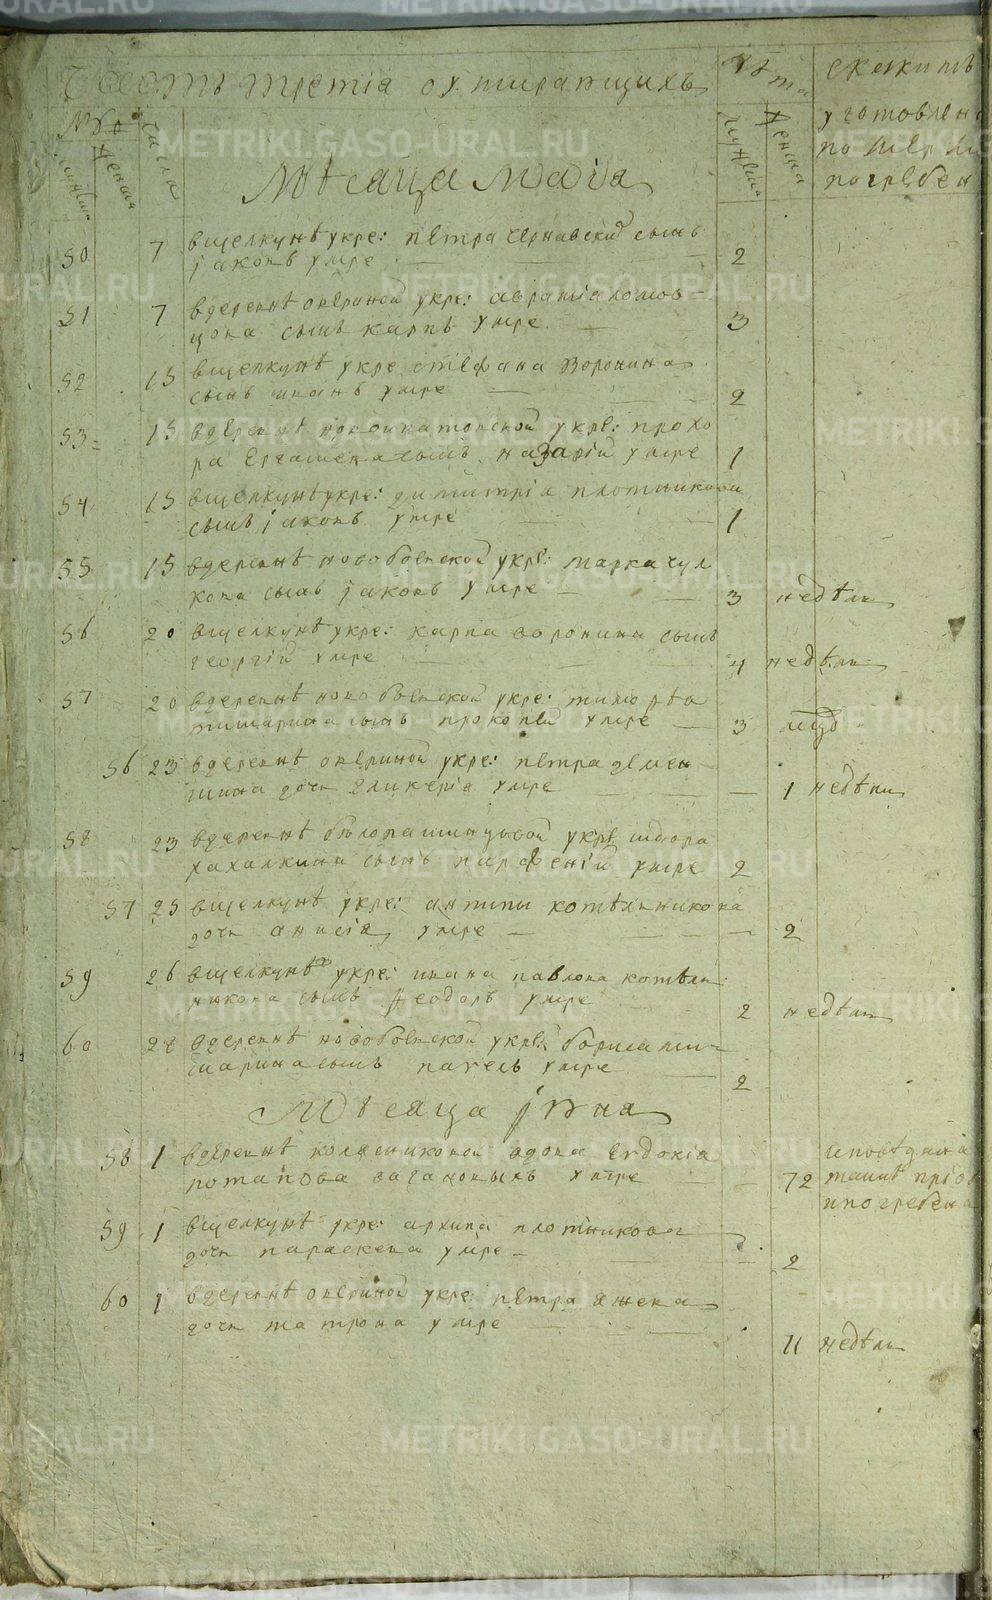 Часть третія о умирающихъ
лѣта
скажимъ
уготовлен
по церкви
погребен
№ ро
мужска
женска
числа
мужска
женска
Мѣсяца Маія
50 7 вщелкунѣ укре: петра чернавский сынъ
іаковъ умре 2
51 7 вдеревнѣ оверіной укре: авраміа ломов
цова сынъ карпъ умре 3
52 15 вщелкунѣ укре стефана воронина
сынъ иванъ умре 2
53 15 вдеревнѣ новоипатовской укре: прохо
ра сынъ назарій умре 1
54 15 вщелкунѣ укре: димитріа плотникова
сынъ іаковъ умре 1
55 15 вдеревнѣ новобоевской укре: марка чул
кова сынъ іаковъ умре 3 недѣли
56 20 вщелкунѣ укре: карпа воронина сынъ
георгій умре 4 недѣли
57 20 вдеревнѣ новобоевской укре: тимофѣа
мишарина сынъ прокопей умре 3 мцд
56 23 вдеревнѣ оверіной укре: петра демен
шина дочь гликеріа умре 1 недѣли
58 23 вдеревнѣ укре шдора
хахалкина сынъ парфеній умре 2
57 25 вщелкунѣ укре: антипы котѣлникова
дочь анисіа умре 2
59 26 вщелкунѣ укре: ивана павлова котѣл
никова сынъ феодоръ умре 2 недѣли
60 28 вдеревнѣ новобоевской укре: бориса ми
шарина сынъ павелъ умре 2
Мѣсяца іюна
58 1 вдеревнѣ колясниковой вдова евдокіа
потапова вагановыхъ умре 72
исповѣдана
таинѣ пріоб
ипогребена
59 1 вщелкунѣ укре: архипа плотникова
дочь параскева умре 2
60 1 вдеревнѣ оверіной укре: петра яжева
дочь матрона умре 11 недѣли
METRIKI.GASO-URAL.RU